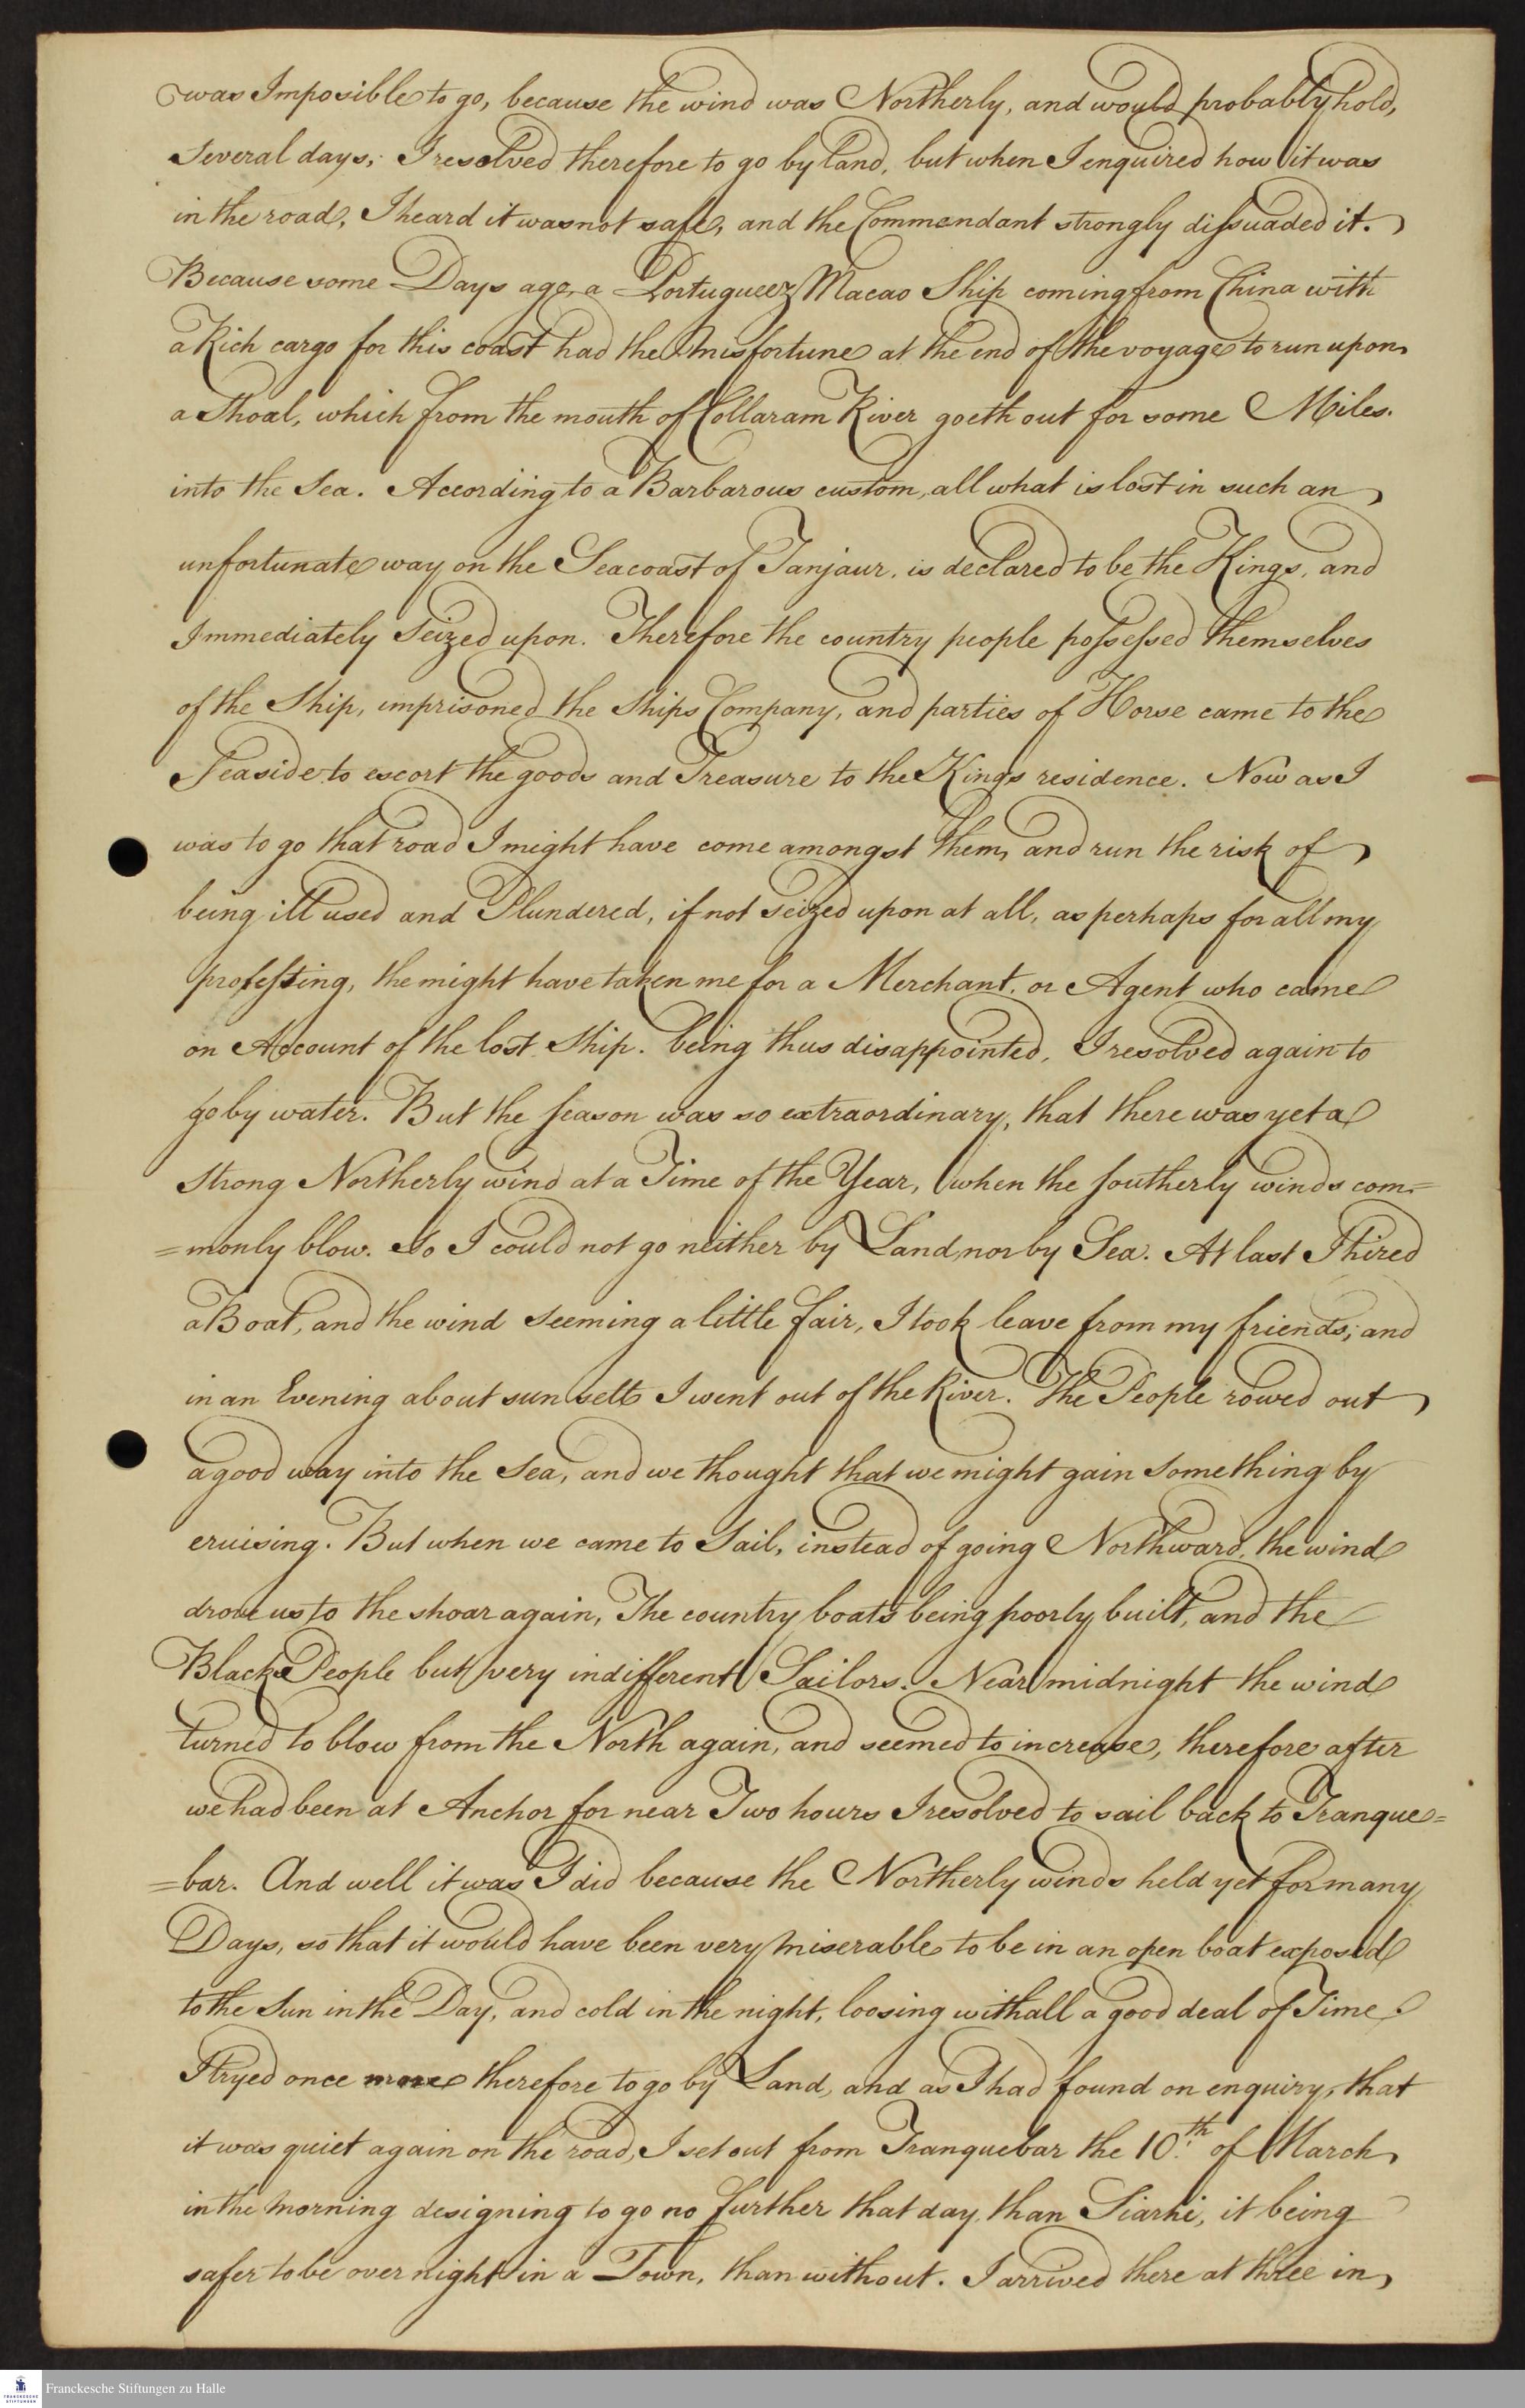 was Imposible to go, because the wind was Northerly, and would probably hold,
Several days; I resolved therefore to go by land, but when I enquired how it was
in the road, I heard it was not safe, and the Commendant strongly dissuaded it.
Because some Days ago, a Portugueez Macao Ship coming from China with
a Rich cargo for this coast had the Misfortune at the end of the voyage to run upon
a Shoal, which from the mouth of Collaram River goeth out for some Miles.
into the Sea. According to a Barbarous custom, all what is lost in such an
unfortunate way on the Seacoast of Tanjaur, is declared to be the Kings, and
Immediately Seized upon. Therefore the country people possessed themselves
of the Ship, imprisoned the Ships Company, and parties of Horse came to the
Seaside to escort the goods and Treasure to the Kings residence. Now as I
was to go that road I might have come amongst them, and run the risk of
being ill used and Plundered, if not seized upon at all, as perhaps for all my
professing, the might have taken me for a Merchant, or Agent who came
on Account of the lost Ship. being thus disappointed, I resolved again to
go by water. But the season was so extraordinary, that there was yet a
strong Northerly wind at a Time of the Year, when the southerly winds com=
=monly blow. So I could not go neither by Land, nor by Sea. At last I hired
a Boat, and the wind Seeming a little fair, I took leave from my friends; and
in an Evening about sun sett I went out of the River. The People rowed out
a good way into the Sea, and we thought that we might gain something by
cruising. But when we came to Sail, instead of going Northward, the wind
drove us to the shoar again, The country boats being poorly built, and the
Black People but very indifferent Sailors. Near midnight the wind
turned to blow from the North again, and seemed to increase, therefore after
we had been at Anchor for near Two hours I resolved to sail back to Tranque=
=bar. And well it was I did because the Northerly winds held yet for many
Days, so that it would have been very miserable to be in an open boat exposed
to the Sun in the Day, and cold in the night, loosing withall a good deal of Time
I tryed once more therefore to go by Land, and as I had found on enquiry, that
it was quiet again on the road, I set out from Tranquebar the 10th. of March
in the morning designing to go no further that day, than Siarhi, it being
safer to be over night in a Town, than without. I arrived there at three in
Franckesche Stiftungen zu Halle